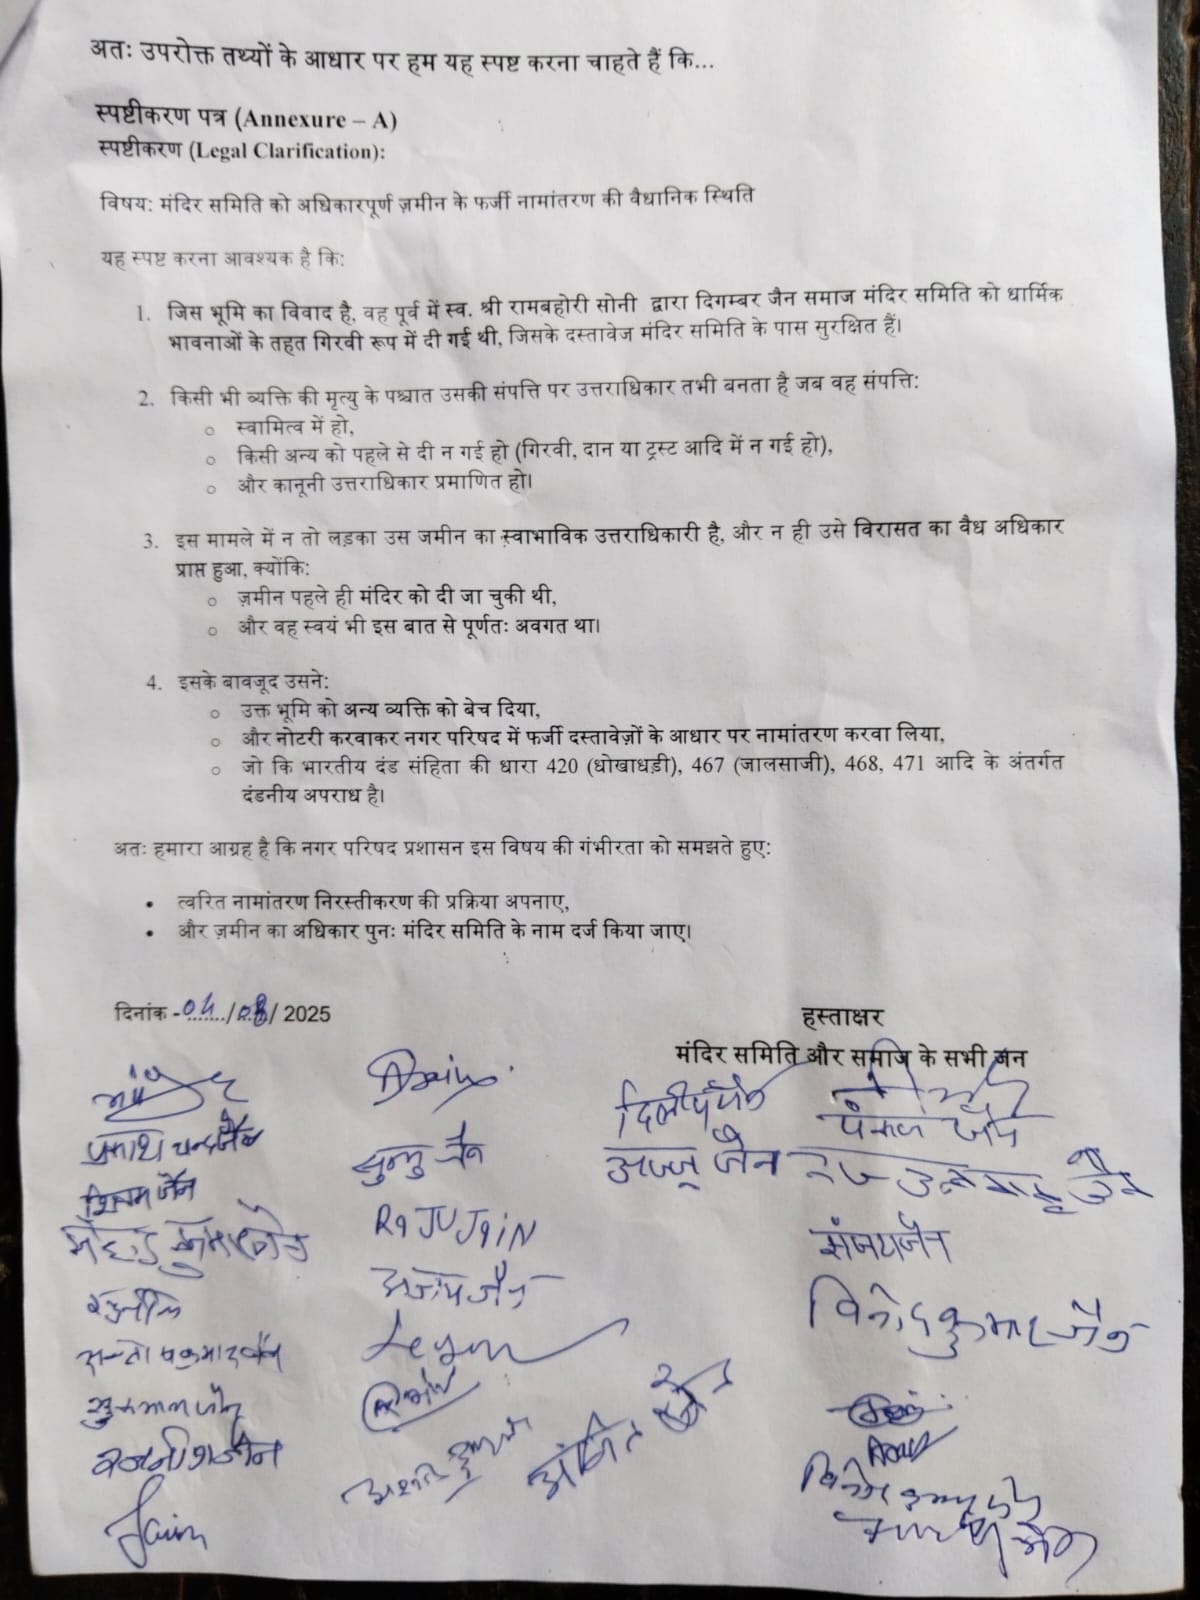 अतः उपरोक्त तथ्यों के आधार पर हम यह स्पष्ट करना चाहते हैं कि...
स्पष्टीकरण पत्र (Annexure – A)
स्पष्टीकरण (Legal Clarification):
विषय: मंदिर समिति को अधिकारपूर्ण ज़मीन के फर्जी नामांतरण की वैधानिक स्थिति
यह स्पष्ट करना आवश्यक है कि:
1. जिस भूमि का विवाद है, वह पूर्व में स्व. श्री रामबहोरी सोनी द्वारा दिगम्बर जैन समाज मंदिर समिति को धार्मिक
भावनाओं के तहत गिरवी रूप में दी गई थी, जिसके दस्तावेज मंदिर समिति के पास सुरक्षित हैं।
2. किसी भी व्यक्ति की मृत्यु के पश्चात उसकी संपत्ति पर उत्तराधिकार तभी बनता है जब वह संपत्ति:
o स्वामित्व में हो,
o किसी अन्य को पहले से दी न गई हो (गिरवी, दान या ट्रस्ट आदि में न गई हो),
o और कानूनी उत्तराधिकार प्रमाणित हो।
3. इस मामले में न तो लड़का उस जमीन का स्वाभाविक उत्तराधिकारी है, और न ही उसे विरासत का वैध अधिकार
प्राप्त हुआ, क्योंकि:
o ज़मीन पहले ही मंदिर को दी जा चुकी थी,
o और वह स्वयं भी इस बात से पूर्णतः अवगत था।
4. इसके बावजूद उसने:
o उक्त भूमि को अन्य व्यक्ति को बेच दिया,
o और नोटरी करवाकर नगर परिषद में फर्जी दस्तावेज़ों के आधार पर नामांतरण करवा लिया,
o जो कि भारतीय दंड संहिता की धारा 420 (धोखाधड़ी), 467 (जालसाजी), 468, 471 आदि के अंतर्गत
दंडनीय अपराध है।
अतः हमारा आग्रह है कि नगर परिषद प्रशासन इस विषय की गंभीरता को समझते हुए:
• त्वरित नामांतरण निरस्तीकरण की प्रक्रिया अपनाए,
• और ज़मीन का अधिकार पुनः मंदिर समिति के नाम दर्ज किया जाए।
दिनांक -04/08/ 2025
हस्ताक्षर
मंदिर समिति और समाज के सभी जन
दिलीप जैन
पंकज जैन
अज्जू जैन
जैन
RaJU Jain
संजय जैन
अजय जैन
विनोद कुमार जैन
रजनीश जैन
अंकित जैन
Jain